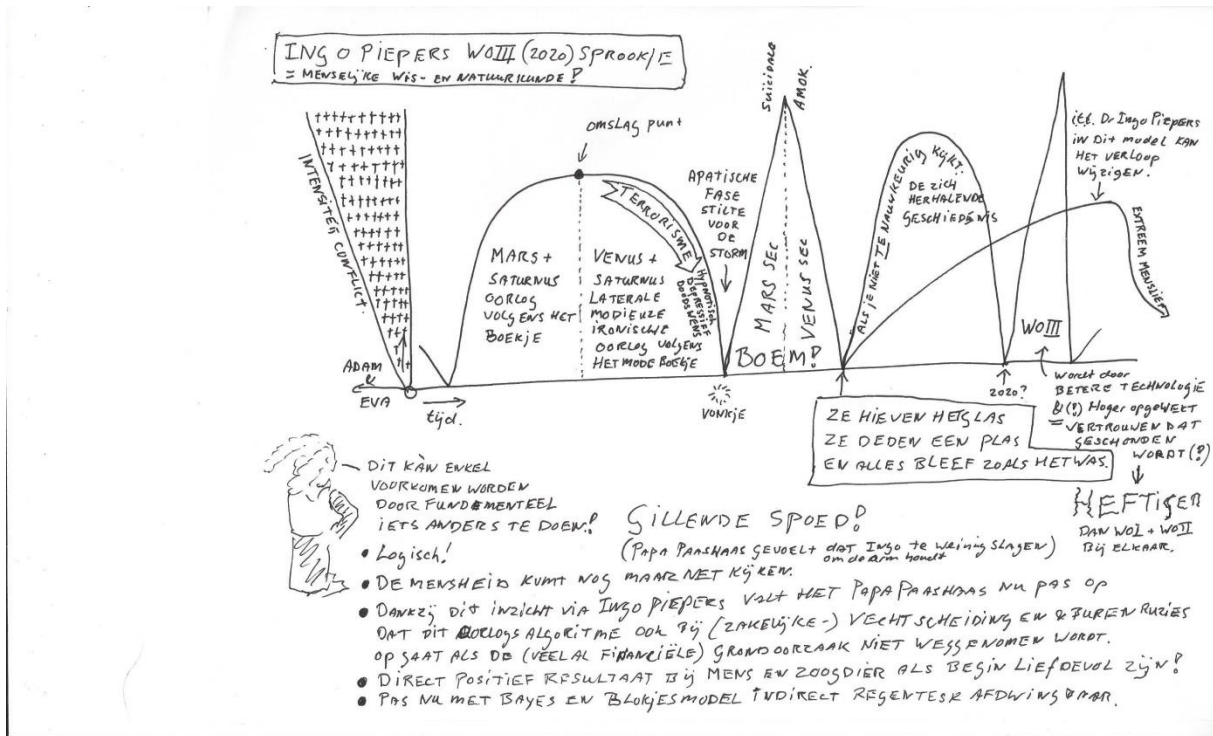 INGO PIEPERS WOIII (2020) SPROOKJE
= MENSELIJKE WIS- EN NATUURKUNDE!
INTENSITEIT CONFLICT.
ADAM
&
EVA
tijd.
OMSLAG PUNT
MARS +
SATURNUS
OORLOG
VOLGENS HET
BOEKJE
VENUS +
SATURNUS
LATERALE
MODIEUZE
IRONISCHE
OORLOG VOLGENS
HET MODE BOEKJE
TERRORISME
HYPNOTISCH
DEPRESSIEF
DOODSWENS
APATISCHE
FASE
STILTE
VOOR
DE
STORM
VONKJE
SUICIDALE
AMOK.
MARS SEC
VENUS SEC
BOEM!
ALS JE NIET TE NAUWKEURIG KIJKT.
DE ZICH
HERHALENDE
GESCHIEDENIS
i.t.t. Dr Ingo Piepers
in Dit model KAN
HET VERLOOP
WIJZIGEN.
EXTREEM MENSLIEF
WOIII
2020?
ZE HIEVEN HET GLAS
ZE DEDEN EEN PLAS
EN ALLES BLEEF ZOALS HET WAS.
Wordt door
BETERE TECHNOLOGIE
&(!) Hoger opgewekt
= VERTROUWEN DAT
GESCHONDEN
WORDT(!)
HEFTIGER
DAN WOI + WOII
BIJ ELKAAR.
DIT KÀN ENKEL
VOORKOMEN WORDEN
DOOR FUNDEMENTEEL
IETS ANDERS TE DOEN!
GILLENDE SPOED!
(PAPA PAASHAAS GEVOELT DAT Ingo te weinig slagen
om de arm houdt)
• Logisch!
• DE MENSHEID KUMT NOG MAAR NET KIJKEN.
• DANKZIJ DIT INZICHT VIA INGO PIEPERS VALT HET PAPA PAASHAAS NU PAS OP
DAT DIT OORLOGS ALGORITME OOK BIJ (ZAKELIJKE-) VECHTSCHEIDING EN & BUREN RUZIES
OP GAAT ALS DE (VEELAL FINANCIËLE) GRONDOORZAAK NIET WEGGENOMEN WORDT.
• DIRECT POSITIEF RESULTAAT BIJ MENS EN ZOOGDIER ALS BEGIN LIEFDEVOL ZIJN!
• PAS NU MET BAYES EN BLOKJESMODEL INDIRECT REGENTESK AFDWINGBAAR.